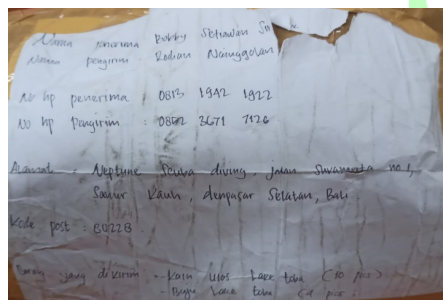 Nama penerima Bobby Setiawan
Nama pengirim Rodian Nainggolan
No hp penerima : 0813 1942 1922
No hp Pengirim : 0882 3671 7126
Alamat : Neptune Scuba diving, jalan Suramata no 1,
Sanur Kauh, denpasar Selatan, Bali.
Kode post : 80228
Barang yang dikirim - Kain Ulos Lake toba (10 pcs)
- Baju Lake toba (4 pcs)